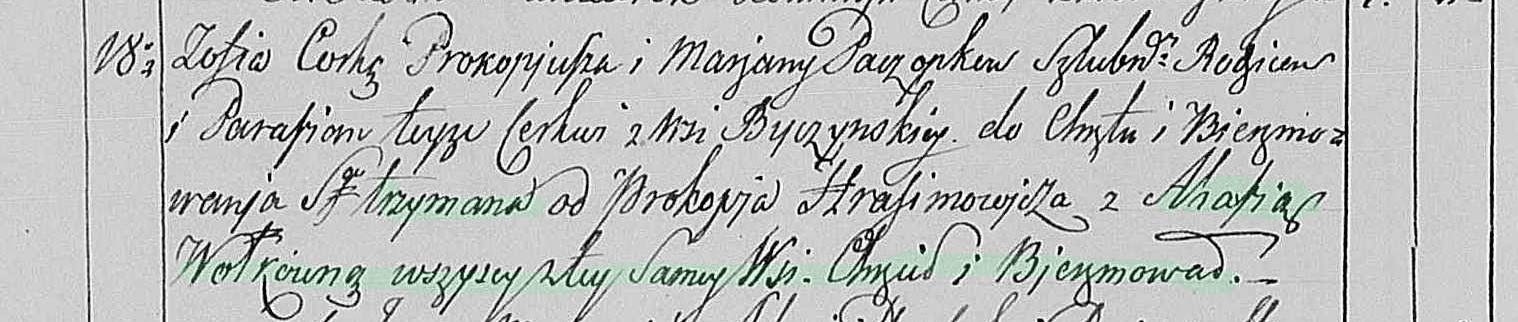 18. Zofia Corkę Prokopjusza i Marjany Paczopkow Szlubn: Rodzicow
i Parafian teyze Cerkwi z Wsi Byczynskiey. do Chrztu i Bierzmo=
wanja S. trzymana od Prokopja Harasimowjcza z Ahafią
Wołkowną wszyscy z tey Samey Wsi. Chrzcił i Bjerzmował.